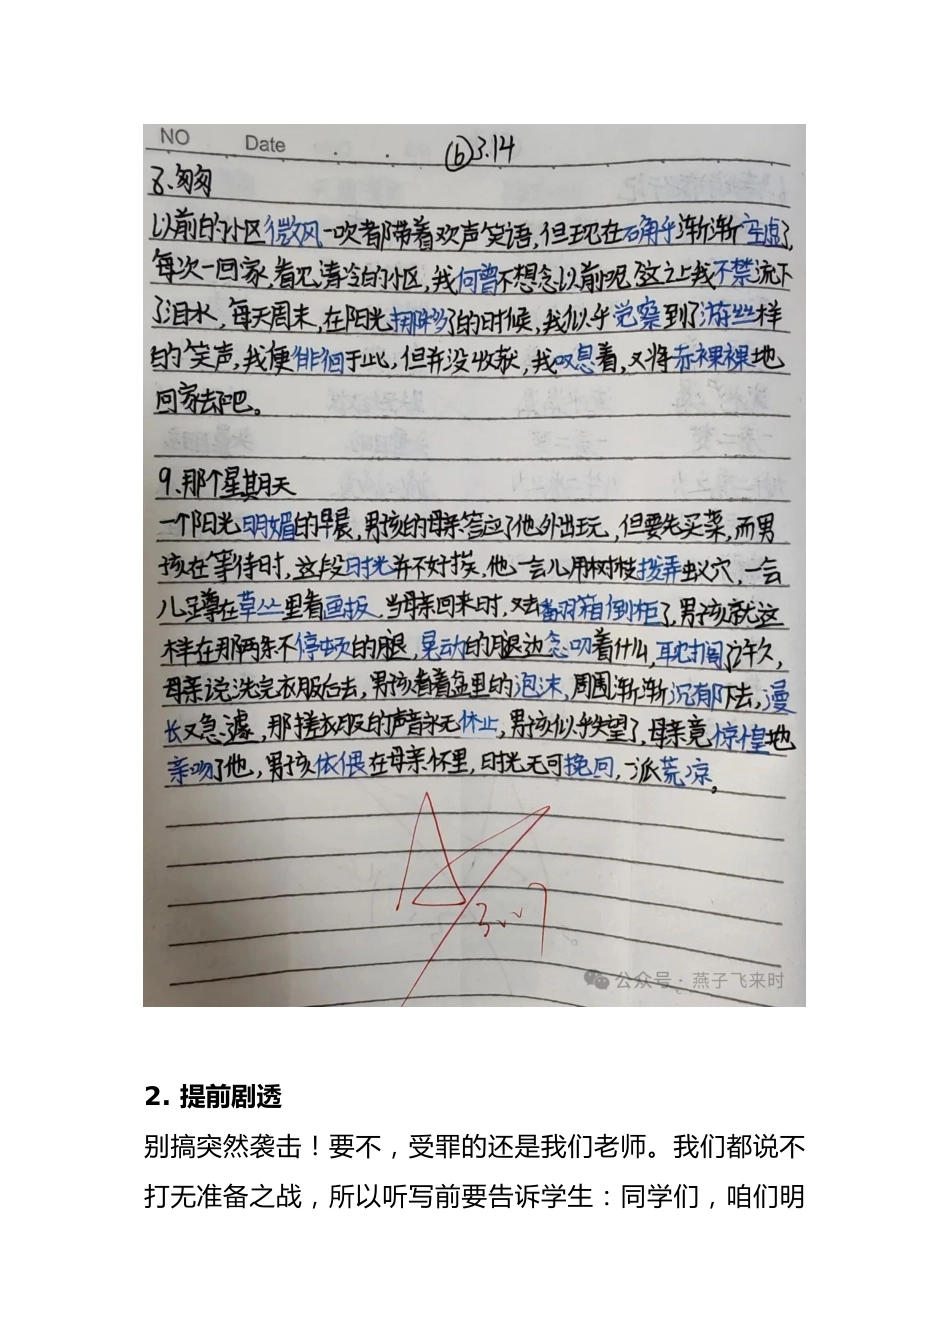 NO Date ⑥3.14
8、匆匆
以前的小区微风一吹都带着欢声笑语,但现在确乎渐渐空虚了,
每次一回家,看见清冷的小区,我何曾不想念以前呢,这让我不禁流下
了泪水,每天周末,在阳光挪移了的时候,我似乎觉察到了游丝样
的笑声,我便徘徊于此,但并没收获,我叹息着,又将赤裸裸地
回家去吧。
9、那个星期天
一个阳光明媚的早晨,男孩的母亲答应了他外出玩,但要先买菜,而男
孩在等待时,这段时光并不好挨,他一会儿用树枝拨弄蚁穴,一会
儿蹲在草丛里看画报,当母亲回来时,又去翻箱倒柜了,男孩就这
样在那两条不停顿的腿,晃动的腿边念叨着什么,耽搁了许久,
母亲说洗完衣服后去,男孩看着盆里的泡沫,周围渐渐沉郁下去,漫
长又急遽,那搓衣服的声音永无休止,男孩似乎失望了,母亲竟惊惶地
亲吻了他,男孩依偎在母亲怀里,时光无可挽回,一派荒凉。
A
3.17
公众号·燕子飞来时
2. 提前剧透
别搞突然袭击！要不，受罪的还是我们老师。我们都说不
打无准备之战，所以听写前要告诉学生：同学们，咱们明